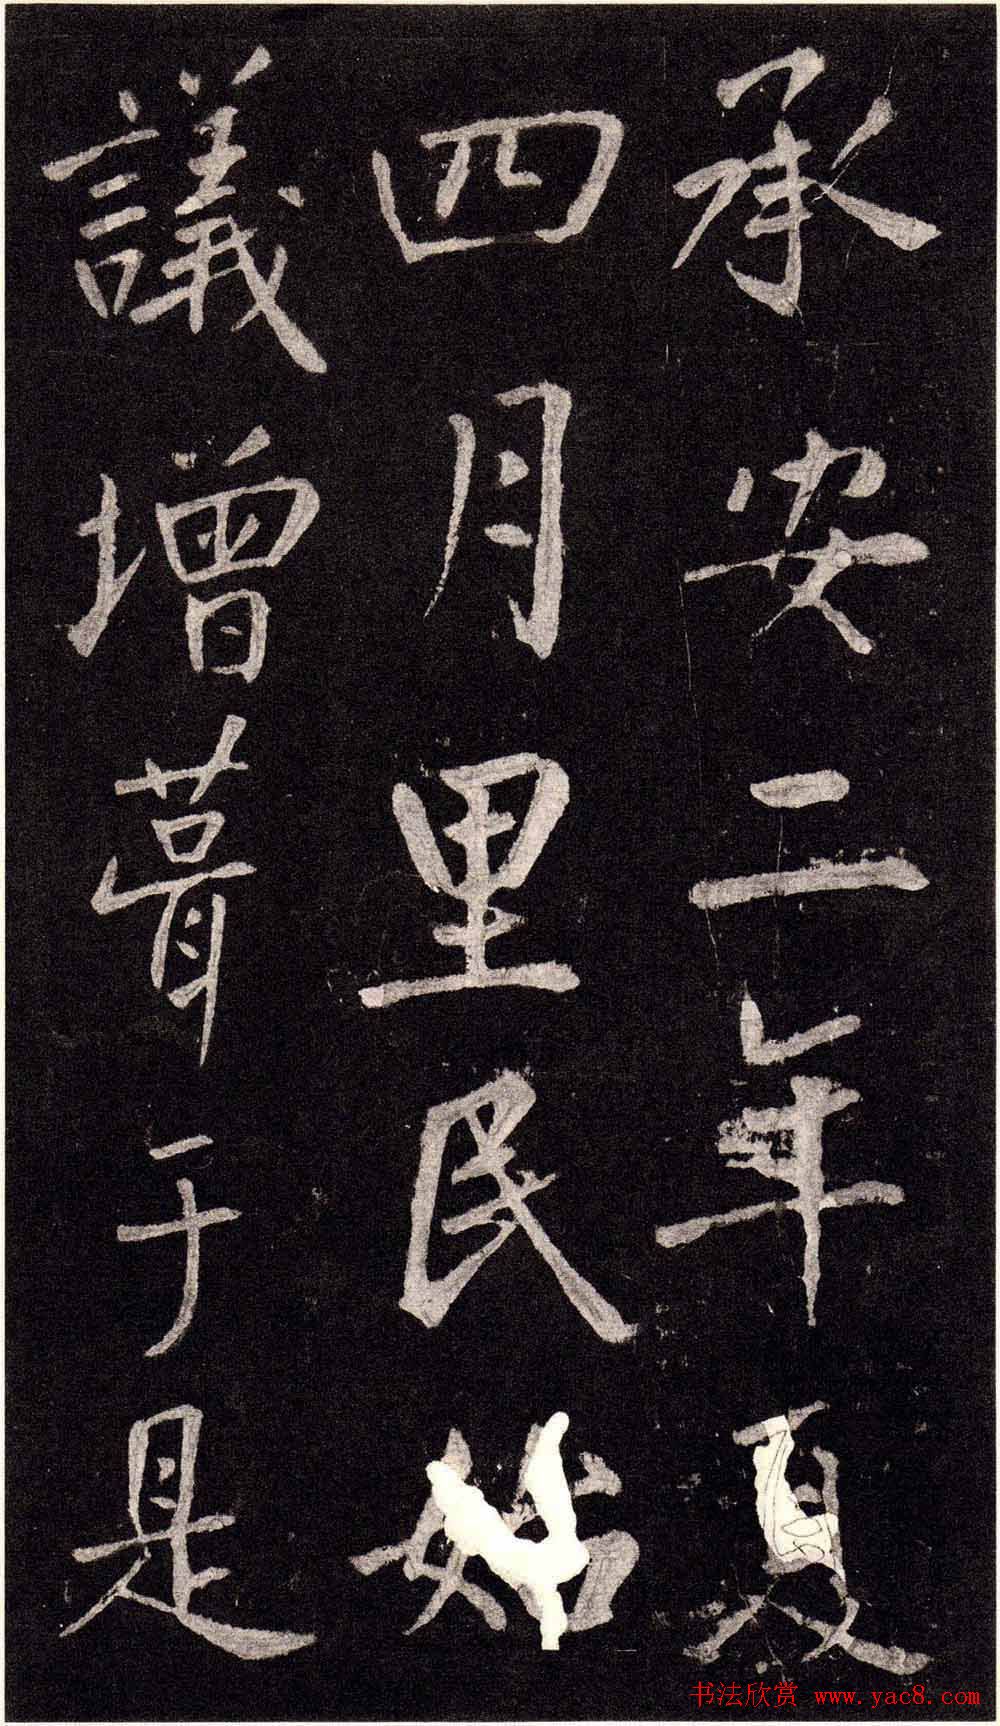 承安二年夏
四月里民始
議增葺于是
书法欣赏 www.yac8.com